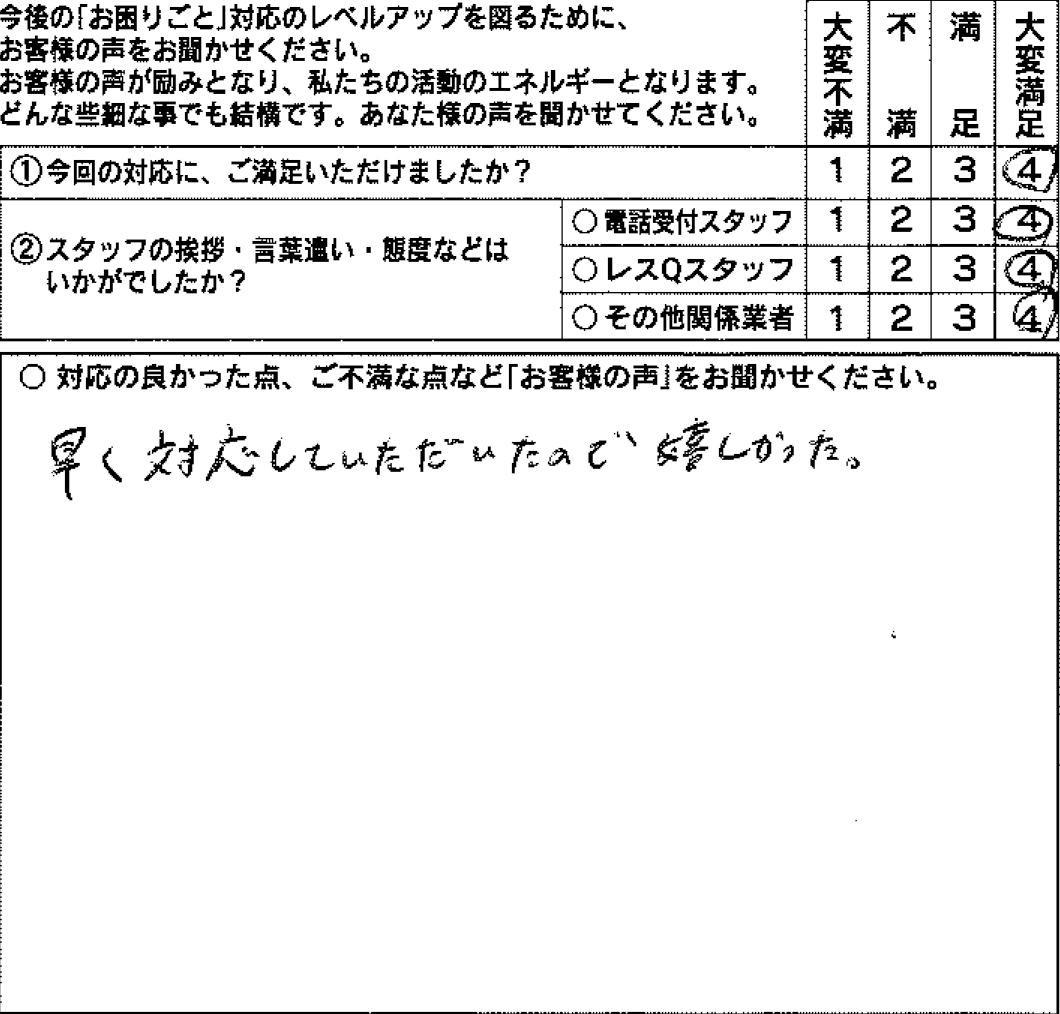 今後の「お困りごと」対応のレベルアップを図るために、
お客様の声をお聞かせください。
お客様の声が励みとなり、私たちの活動のエネルギーとなります。
どんな些細な事でも結構です。あなた様の声を聞かせてください。
大変不満 不満 満足 大変満足
①今回の対応に、ご満足いただけましたか? 1 2 3 4
②スタッフの挨拶・言葉遣い・態度などは
いかがでしたか?
○電話受付スタッフ 1 2 3 4
○レスQスタッフ 1 2 3 4
○その他関係業者 1 2 3 4
○ 対応の良かった点、ご不満な点など「お客様の声」をお聞かせください。
早く対応していただいたので嬉しかった。